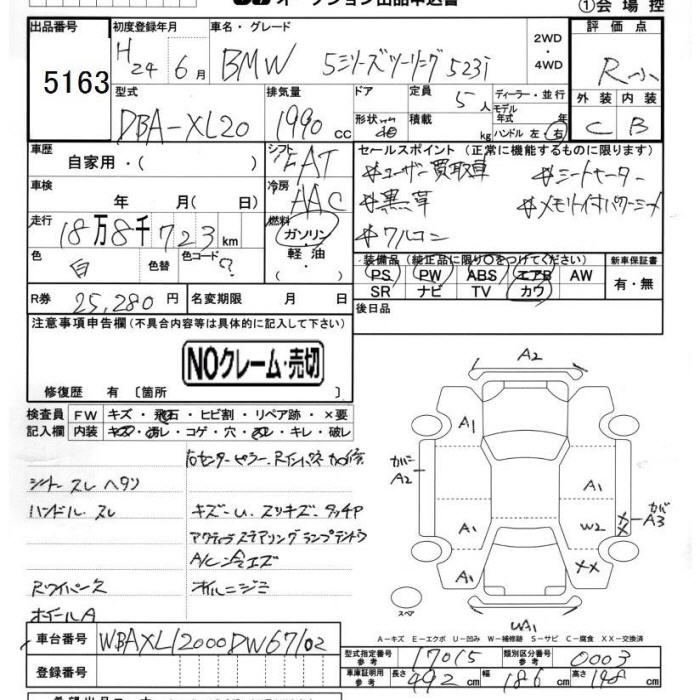 オークション出品申込書
①会場控
出品番号 5163
初度登録年月 H24 6月
車名・グレード BMW 5シリーズツーリング523i
2WD・4WD
評価点 R
型式 DBA-XL20
排気量 1990 cc
ドア 形状
定員 5人
積載 kg
ディーラー・並行
モデル年式 年
ハンドル 左 右
外装 C
内装 B
車歴 自家用・( )
シフト FAT
セールスポイント (正常に機能するものに限ります)
☆ユーザー買取車 ☆シートヒーター
☆黒革 ☆メモリ付パワーシート
☆ワリコン
車検 年 月( 日)
冷房 AAC
走行 18万8千723km
燃料 ガソリン・軽油・( )
色 白 色替 色コード ?
装備品 (純正品に限り○をつけてください)
PS PW ABS エアB AW
SR ナビ TV カワ
新車保証書 有・無
R券 25,280円
名変期限 月 日
後日品
注意事項申告欄 (不具合内容等は具体的に記入して下さい)
NOクレーム・売切
修復歴 有〔箇所 〕
検査員記入欄
FW キズ・飛石・ヒビ割・リペア跡・×要
内装 キズ・汚レ・コゲ・穴・スレ・キレ・破レ
右センターピラー、Rインパネ加修
シート スレ ヘタリ
ハンドル スレ
キズ・U、スリキズ、タッチP
アクティブステアリングランプテントウ
A/C
Rワイパー
オイルニジミ
ホイールA
A2
A1
カバーA2
A1
カバーA3
A1
W2
XX
A1
XX
スペア
WA1
A-キズ E-エクボ U-凹み W-補修跡 S-サビ C-腐食 XX-交換済
車台番号 WBAXL12000DW67102
型式指定番号 参考 17015
類別区分番号 参考 0003
登録番号
車庫証明用 参考 長さ 492cm 幅 186cm 高さ 148cm